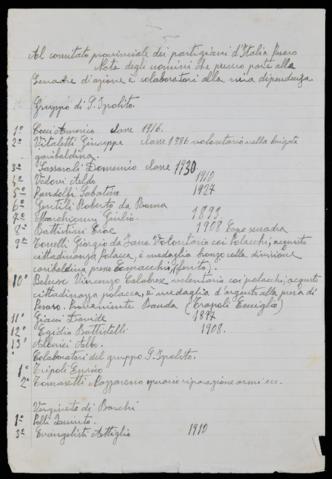 Al comitato provinciale dei partigiani d'Italia Pesaro
Nota degli uomini che presero parte alla
squadre d'azione e colaboratori alla mia dipendenza
Gruppo di S. Ipolito.
1° Ceci Americo classe 1916.
2° Vitaletti Giuseppe classe 1886 volontario nella brigata
garibaldina.
3° Sassaroli Domenico classe 1930
4° Aldo 1910
5° Sabatino 1927
6° Gentili Roberto da Roma
7° Marchionni Giulio. 1899
8° Battistini 1908 Capo squadra
9° Tonelli Giorgio da Fano Volontario coi Polacchi, acquisto
cittadinanza polacca, e medaglia bronzo nella divisione
presso Comacchio (ferito).
10° Vincenzo Calabrese volontario coi polacchi, acquisto
cittadinanza polacca, e medaglia d'argento alla presa di
Pesaro.
11° Davide 1897
12° Egidio Battistelli 1908.
13°
Colaboratori del gruppo S. Ipolito.
1° Tripoli Enrico
2° Tomasetti Nazzareno riparazione armi ec.
Vergineto di Barchi
1° Polli
3° Evangelisti Attiglio 1910